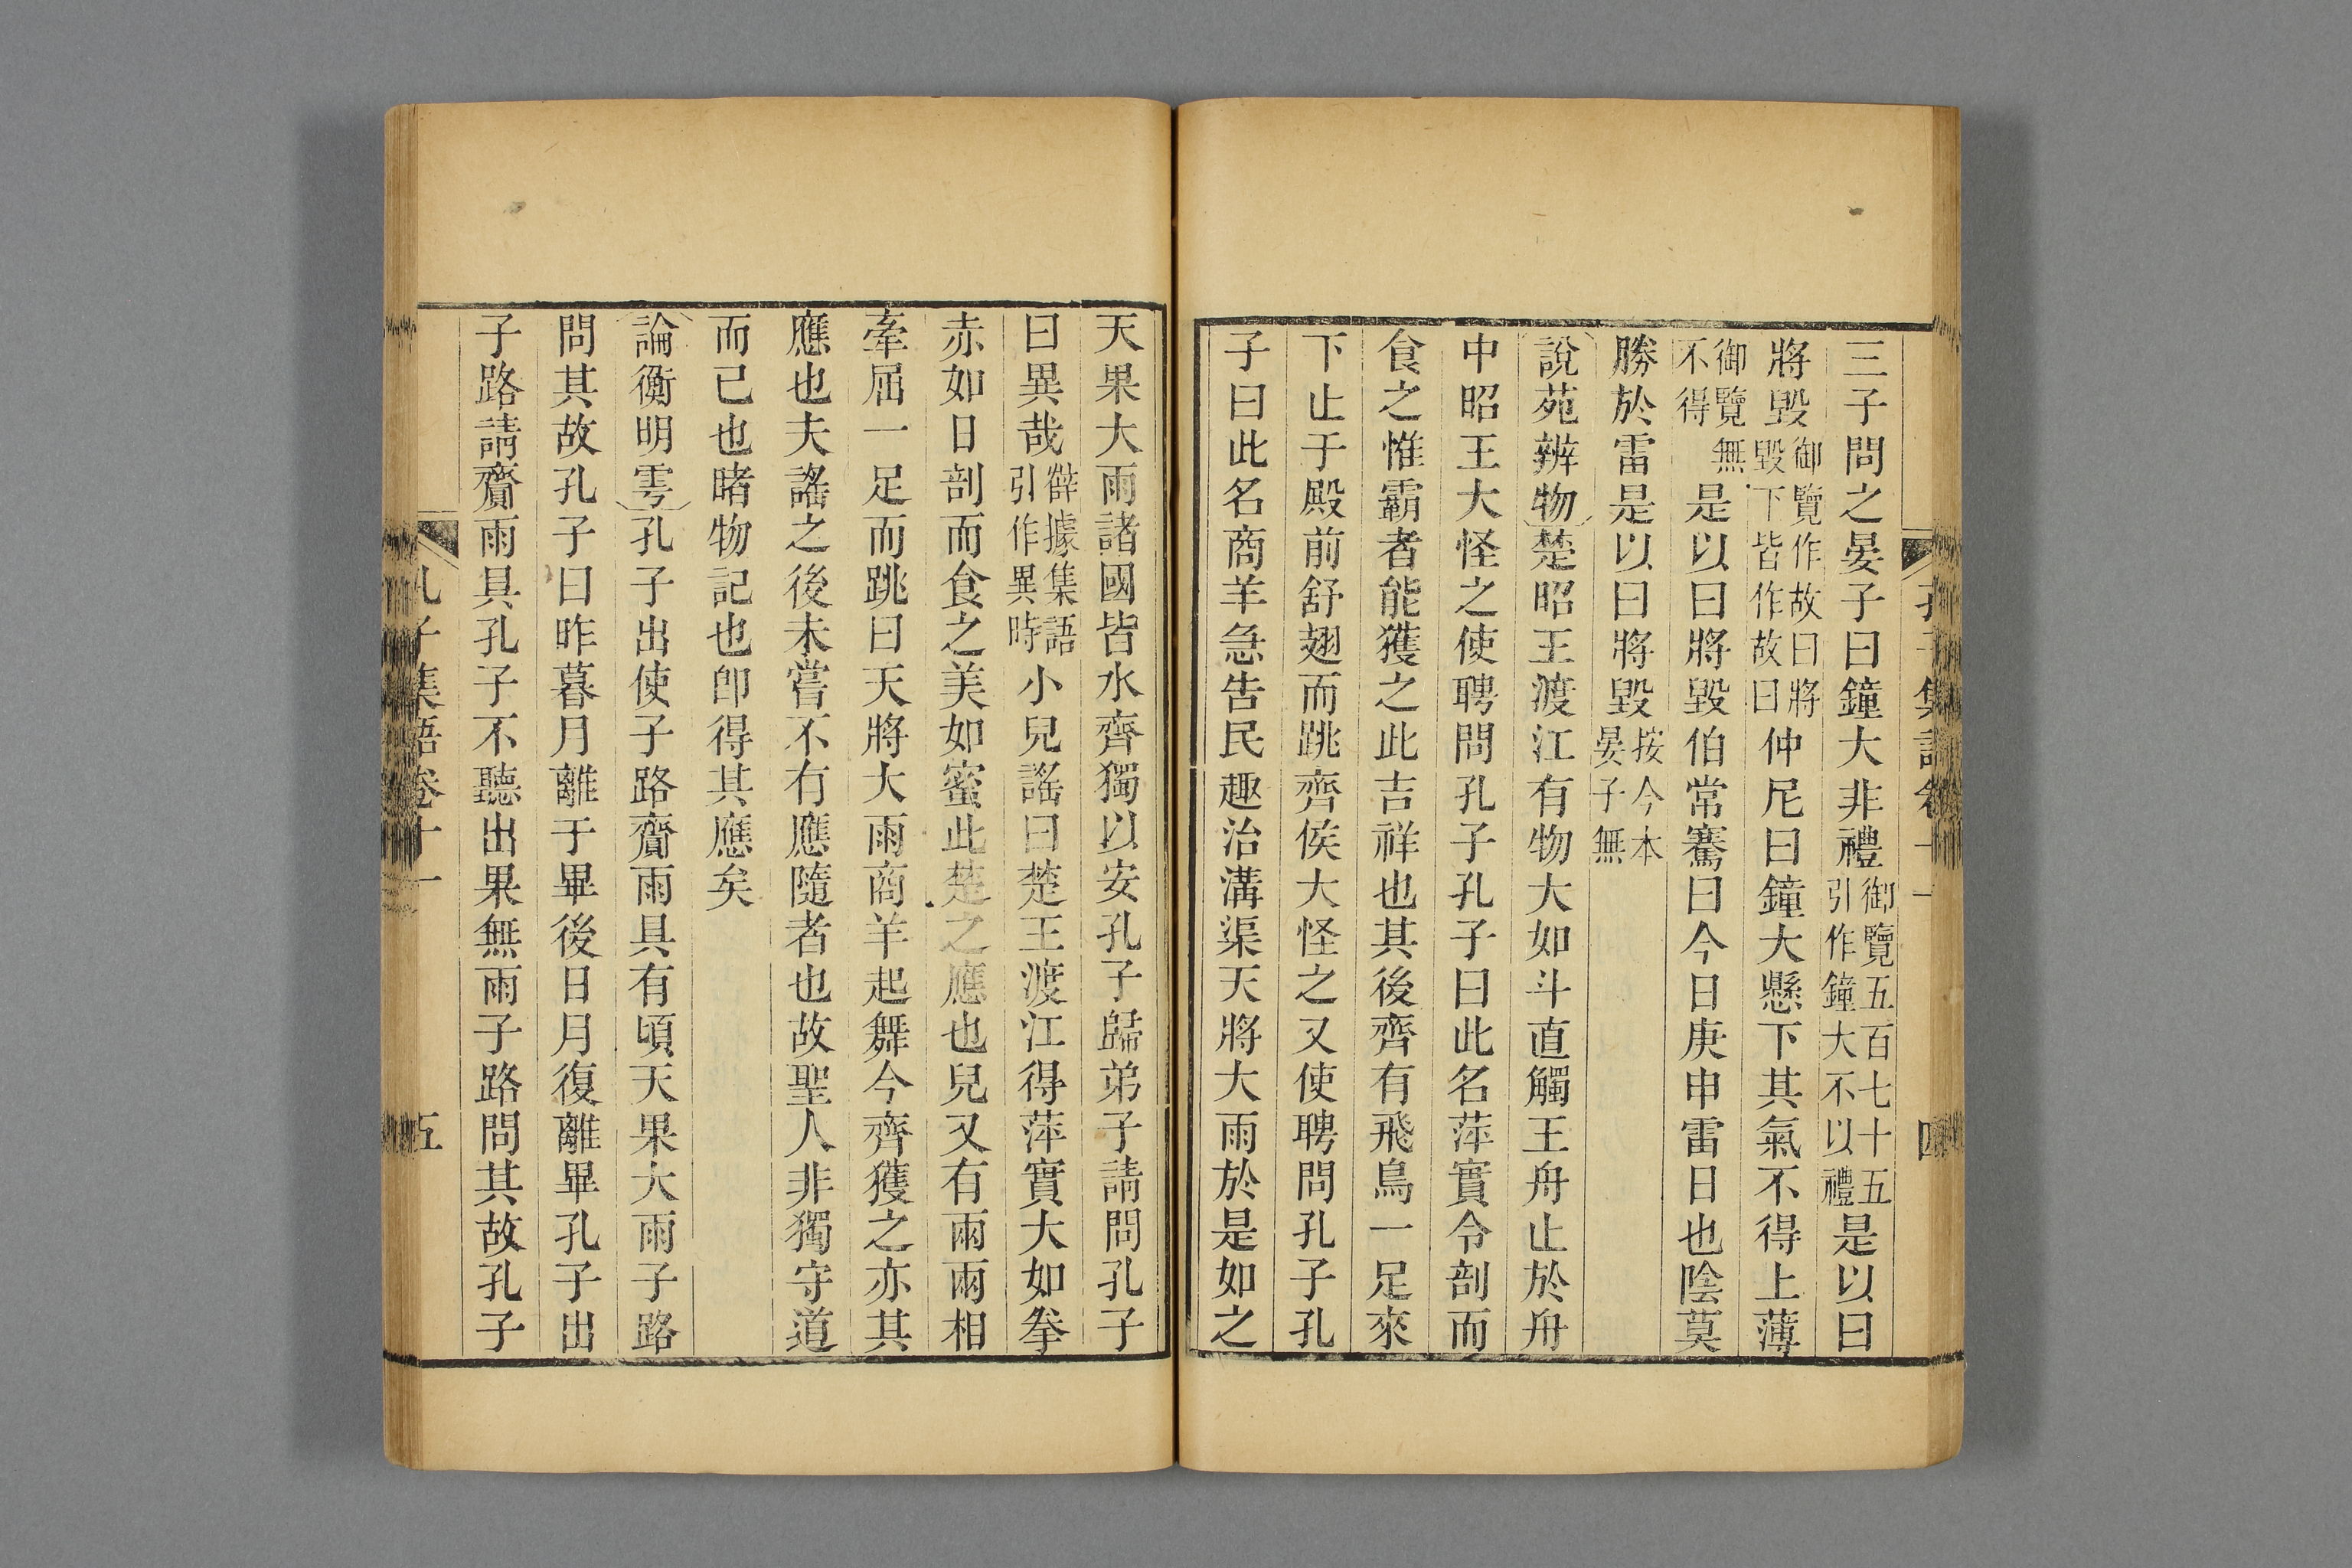 三子問之晏子曰鐘大非禮御覽五百七十五引作鐘大不以禮是以曰
將毀御覽作故曰將毀下皆作故曰仲尼曰鐘大懸下其氣不得上薄
御覽無不得是以曰將毀伯常騫曰今日庚申雷日也陰莫
勝於雷是以曰將毀按今本晏子無
說苑辨物楚昭王渡江有物大如斗直觸王舟止於舟
中昭王大怪之使聘問孔子孔子曰此名萍實令剖而
食之惟霸者能獲之此吉祥也其後齊有飛鳥一足來
下止于殿前舒翅而跳齊侯大怪之又使聘問孔子孔
子曰此名商羊急告民趣治溝渠天將大雨於是如之
天果大雨諸國皆水齊獨以安孔子歸弟子請問孔子
曰異哉薛據集語引作異時小兒謠曰楚王渡江得萍實大如拳
赤如日剖而食之美如蜜此楚之應也兒又有兩兩相
牽屈一足而跳曰天將大雨商羊起舞今齊獲之亦其
應也夫謠之後未嘗不有應隨者也故聖人非獨守道
而已也睹物記也卽得其應矣
論衡明雩孔子出使子路齎雨具有頃天果大雨子路
問其故孔子曰昨暮月離于畢後日月復離畢孔子出
子路請齎雨具孔子不聽出果無雨子路問其故孔子
孔子集語卷十一
五